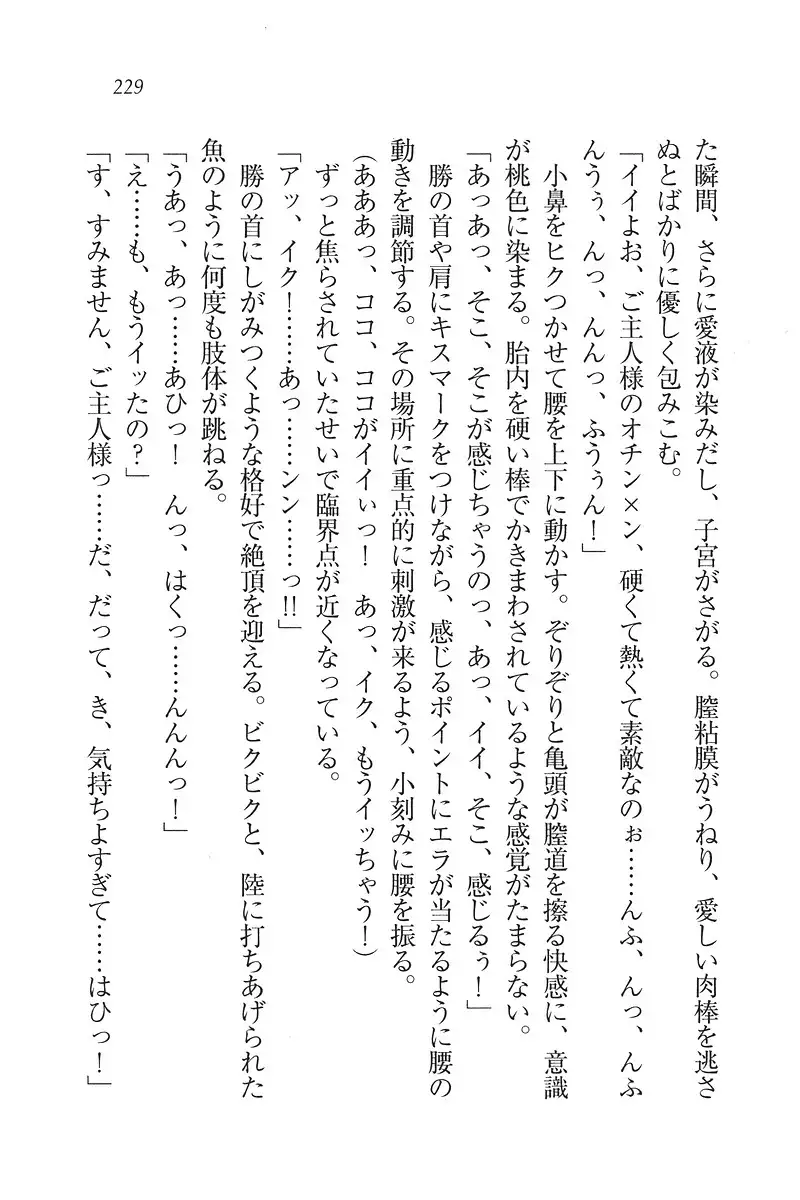 229
た瞬間、さらに愛液が染みだし、子宮がさがる。膣粘膜がうねり、愛しい肉棒を逃さ
ぬとばかりに優しく包みこむ。
「イイよお、ご主人様のオチン×ン、硬くて熱くて素敵なのぉ……んふ、んっ、んふ
んうぅ、んっ、んんっ、ふうぅん！」
小鼻をヒクつかせて腰を上下に動かす。ぞりぞりと亀頭が膣道を擦る快感に、意識
が桃色に染まる。胎内を硬い棒でかきまわされているような感覚がたまらない。
「あっあっ、そこ、そこが感じちゃうのっ、あっ、イイ、そこ、感じるぅ！」
勝の首や肩にキスマークをつけながら、感じるポイントにエラが当たるように腰の
動きを調節する。その場所に重点的に刺激が来るよう、小刻みに腰を振る。
（あああっ、ココ、ココがイイぃっ！　あっ、イク、もうイッちゃう！）
ずっと焦らされていたせいで臨界点が近くなっている。
「アッ、イク！……あっ……シン……っ!!」
勝の首にしがみつくような格好で絶頂を迎える。ビクビクと、陸に打ちあげられた
魚のように何度も肢体が跳ねる。
「うあっ、あっ……あひっ！　んっ、はくっ……んんんっ！」
「え……も、もうイッたの？」
「す、すみません、ご主人様っ……だ、だって、き、気持ちよすぎて……はひっ！」